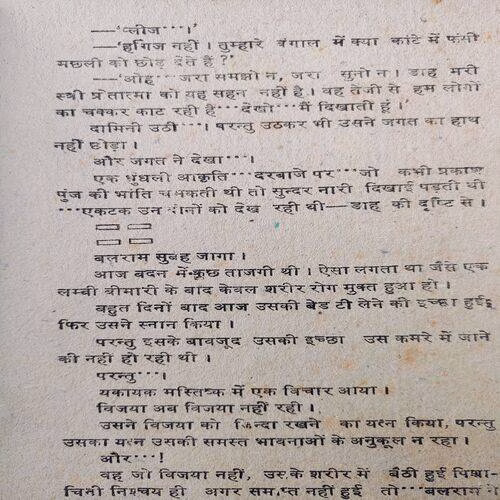 —'प्लीज···।'
—'हर्गिज नहीं। तुम्हारे बंगाल में क्या कांटे में फंसी
मछली को छोड़ देते हैं ?'
—'ओह···जरा समझो न, जरा सुनो न। डाह मरी
स्त्री प्रेतात्मा को यह सहन नहीं है। वह तेजी से हम लोगों
का चक्कर काट रही है···देखो···मैं दिखाती हूं।'
दामिनी उठी···। परन्तु उठकर भी उसने जगत का हाथ
नहीं छोड़ा।
और जगत ने देखा···।
एक धुंधली आकृति···दरवाजे पर···जो कभी प्रकाश
पुंज की भांति चमकती थी तो सुन्दर नारी दिखाई पड़ती थी
···एकटक उन दोनों को देख रही थी—डाह की दृष्टि से।
बलराम सुबह जागा।
आज बदन में कुछ ताजगी थी। ऐसा लगता था जैसे एक
लम्बी बीमारी के बाद केवल शरीर रोग मुक्त हुआ हो।
बहुत दिनों बाद आज उसकी बेड टी लेने की इच्छा हुई
फिर उसने स्नान किया।
परन्तु इसके बावजूद उसकी इच्छा उस कमरे में जाने
की नहीं हो रही थी।
परन्तु···।
यकायक मस्तिष्क में एक विचार आया।
विजया अब विजया नहीं रही।
उसने विजया को जिन्दा रखने का यत्न किया, परन्तु
उसका यत्न उसकी समस्त भावनाओं के अनुकूल न रहा।
और···!
वह जो विजया नहीं, उसके शरीर में बैठी हुई पिशा-
चिनी निश्चय ही अगर समाप्त नहीं हुई तो···बलराम ने